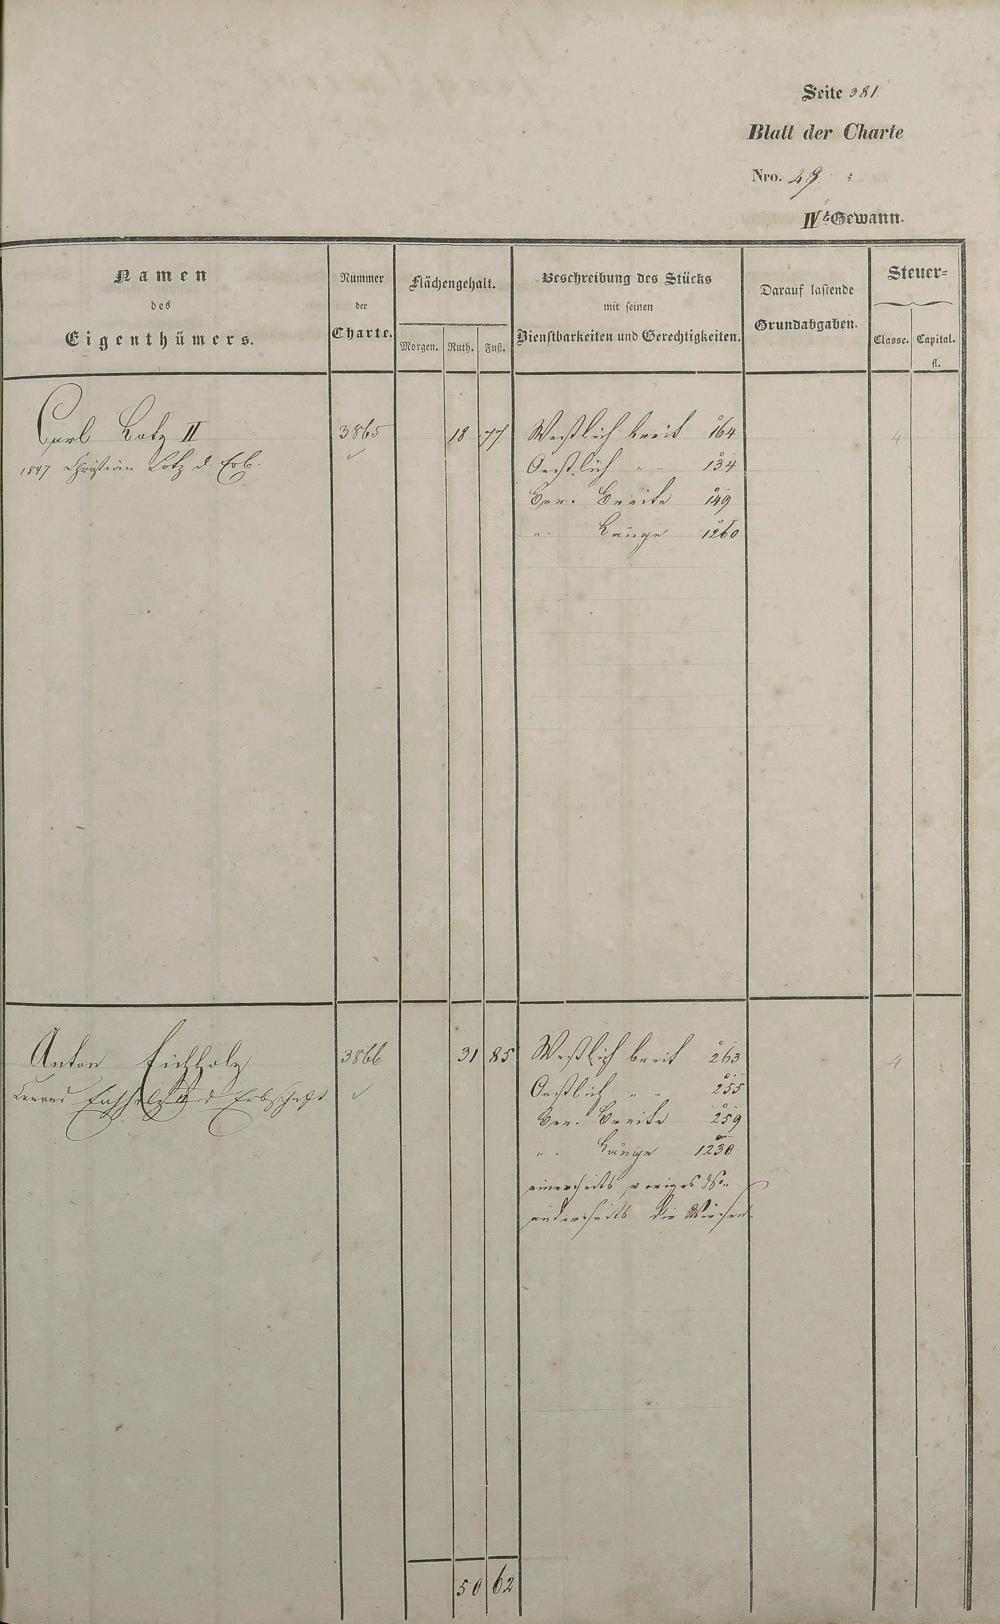 Seite 381
Blatt der Charte
Nro. 49
IVt Gewann.
Namen
des
Eigenthümers.
Nummer
der
Charte.
Flächengehalt.
Morgen. Ruth. Fuß.
Beschreibung des Stücks
mit seinen
Dienstbarkeiten und Gerechtigkeiten.
Darauf lastende
Grundabgaben.
Steuer=
Classe. Capital.
fl.
Carl Lotz II 3865 18 77 Westlich breit 164 4
1847 Christian Lotz d. Erb. Oestlich " 134
Ger. Breite 149
" Länge 1260
Anton Eichholz 3866 31 85 Westlich breit 263 4
Eichholz II d Erbschaft Oestlich " 255
Ger. Breite 259
" Länge 1230
einerseits voriges
anderseits die Wiesen
50 62